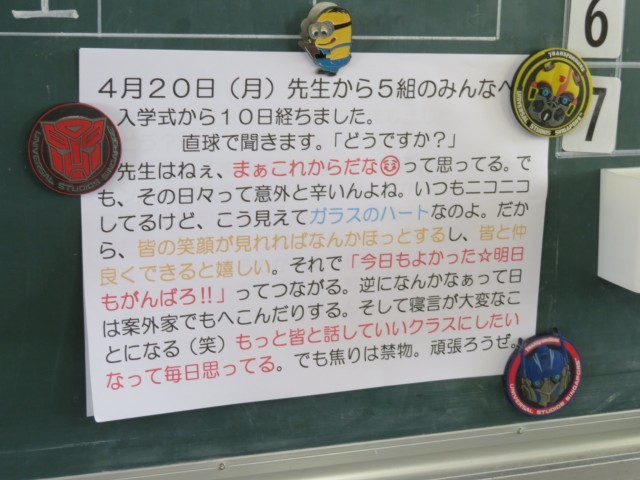 4月20日（月）先生から5組のみんなへ
入学式から10日経ちました。
直球で聞きます。「どうですか？」
先生はねぇ、まぁこれからだな😊って思ってる。で
も、その日々って意外と辛いんよね。いつもニコニコ
してるけど、こう見えてガラスのハートなのよ。だか
ら、皆の笑顔が見れればなんかほっとするし、皆と仲
良くできると嬉しい。それで「今日もよかった☆明日
もがんばろ!!」ってつながる。逆になんかなぁって日
は案外家でもへこんだりする。そして寝言が大変なこ
とになる（笑）もっと皆と話していいクラスにしたい
なって毎日思ってる。でも焦りは禁物。頑張ろうぜ。
6
7
UNIVERSAL STUDIOS SINGAPORE
TRANSFORMERS
UNIVERSAL STUDIOS SINGAPORE